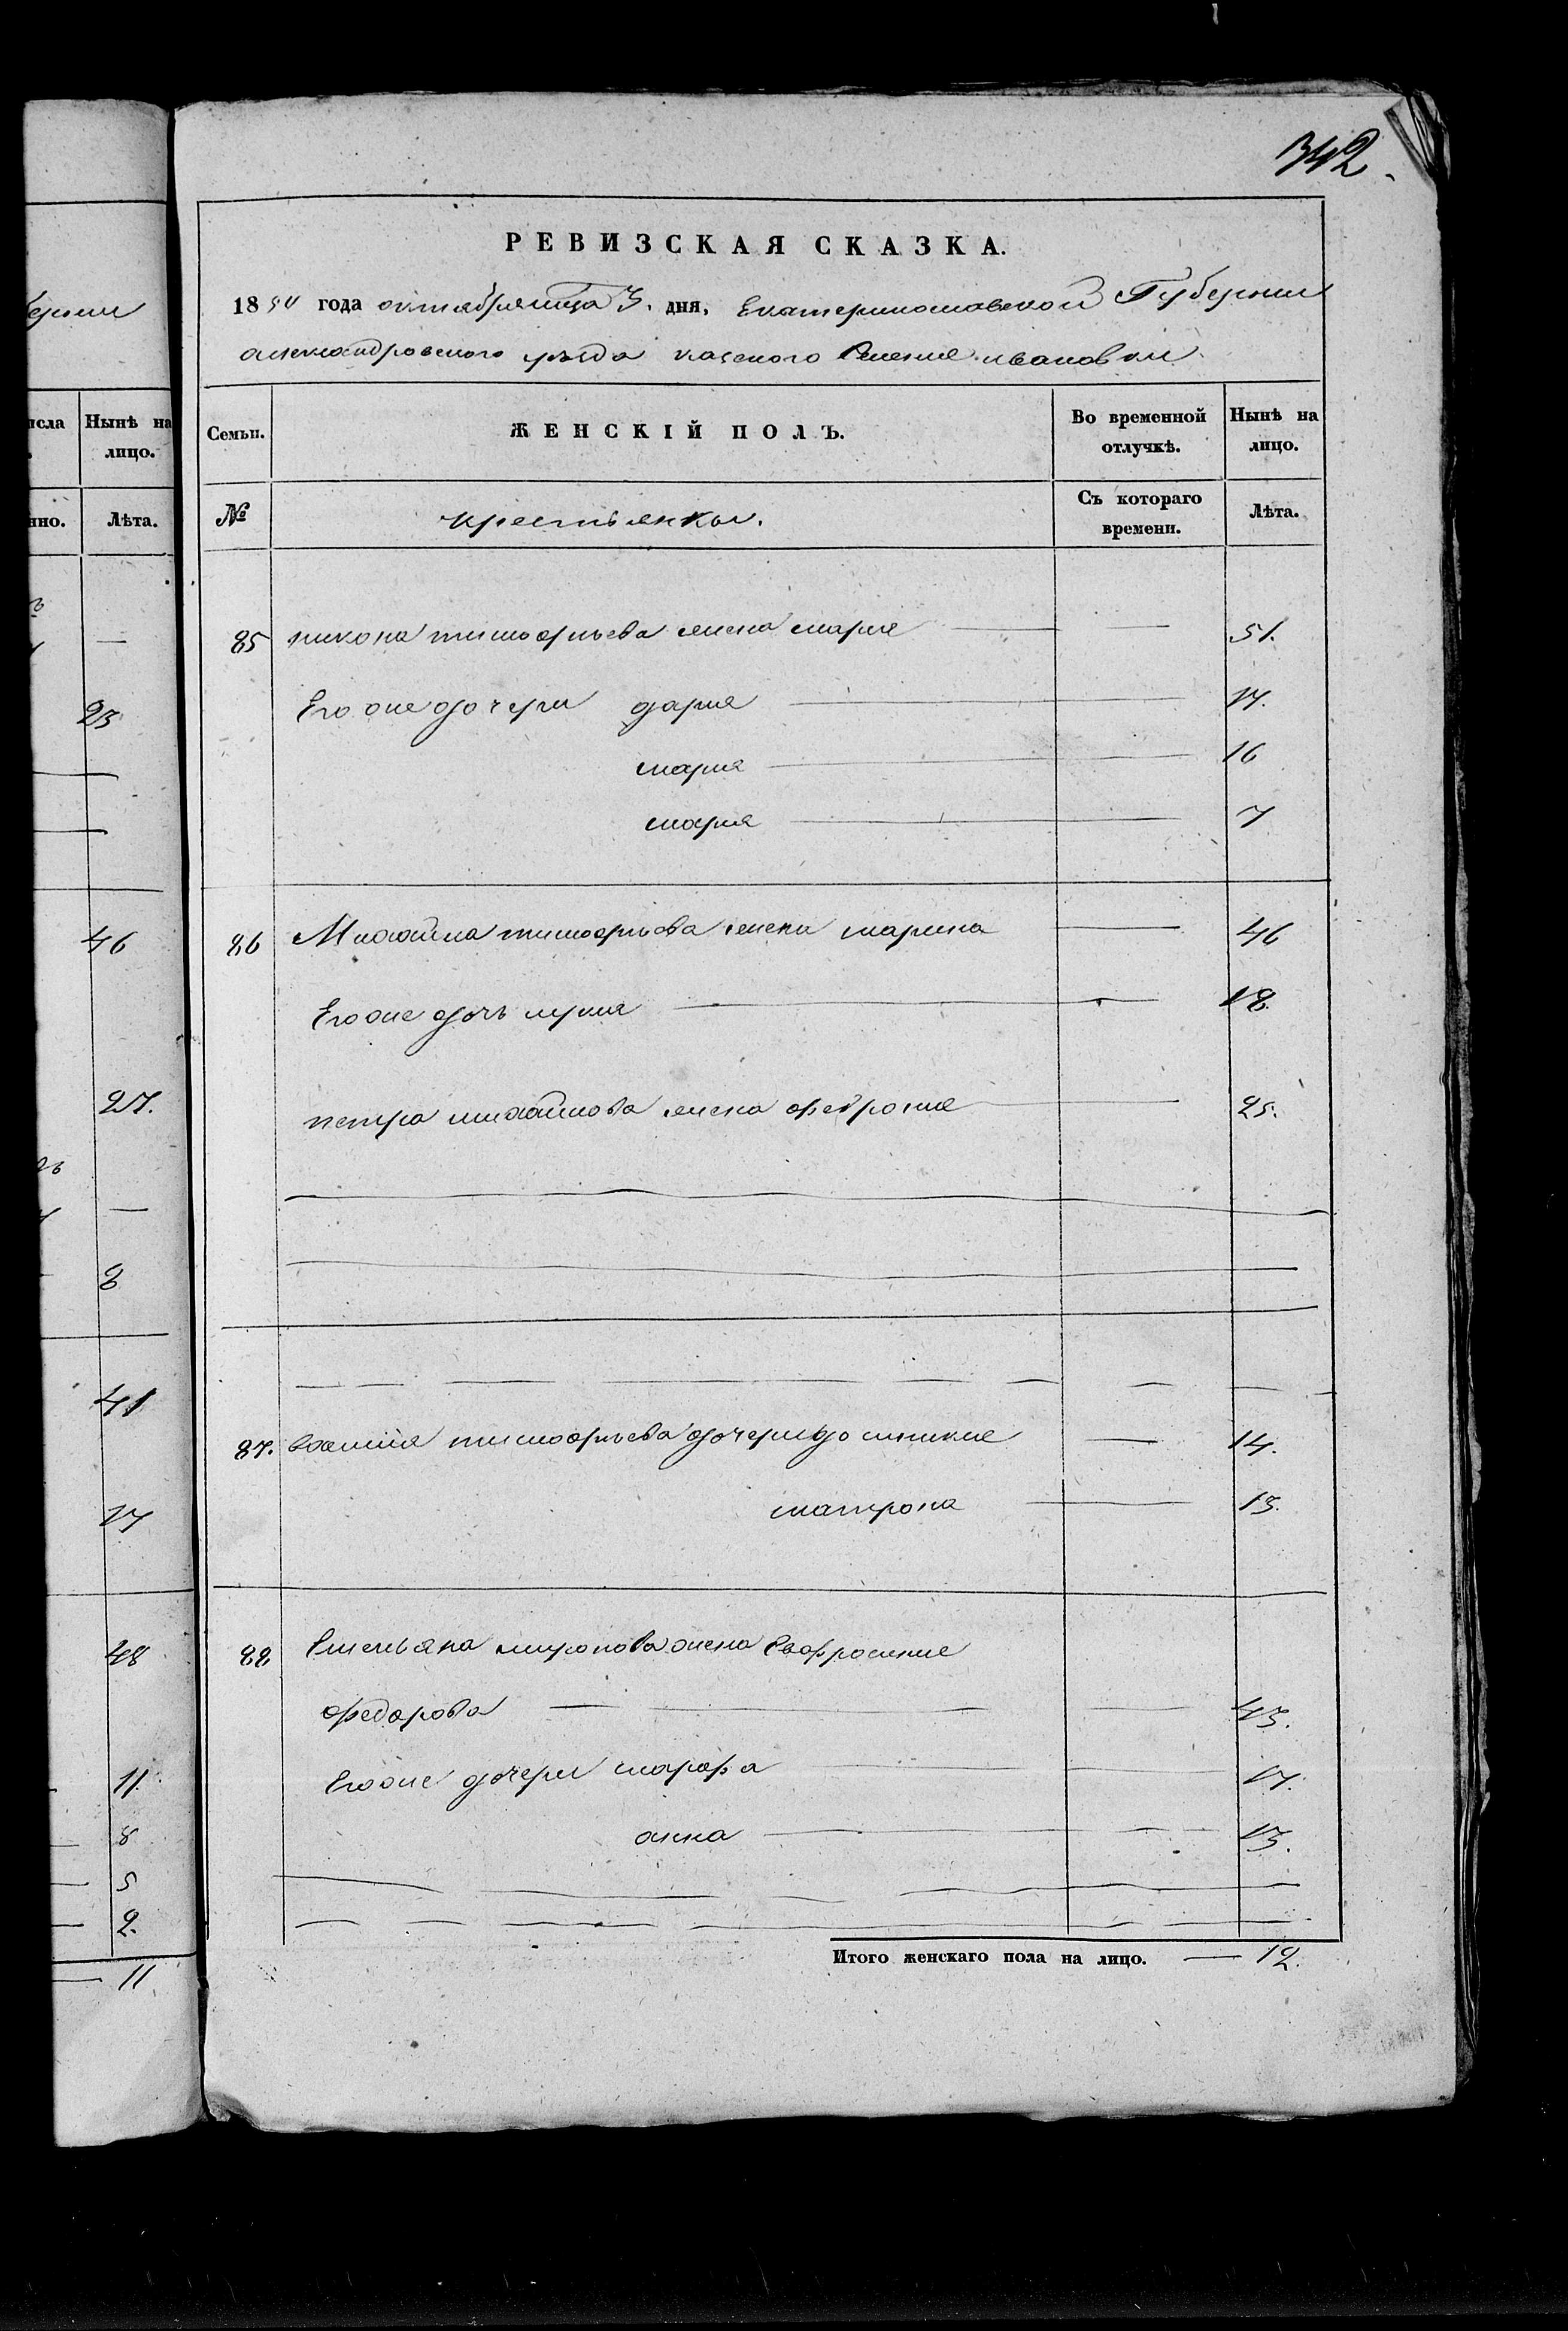 342.
РЕВИЗСКАЯ СКАЗКА.
1850 года октября мца 3. дня, Екатеринославской Губернии
александровского уѣзда казенного селения ивановки
Семьи. ЖЕНСКІЙ ПОЛЪ. Во временной отлучкѣ. Нынѣ на лицо.
№ крестьянки. Съ котораго времени. Лѣта.
85 никона тимофѣева жена мария — — 51.
Его же дочери дария — — 17.
мария — — 16
мария — — 7
86 Михайла тимофѣева жена марина — 46
Его же дочь — — 18.
петра михайлова жена феврония — 25.
87. тимофѣева дочери — 14.
матрона — 13.
88 Емельяна миронова жена Евфросиния
федорова — — — 43.
Его же дочери марфа — — 17.
анна — — 13.
Итого женскаго пола на лицо. — 12.
ернии
исла Нынѣ на лицо.
нно. Лѣта.
—
23
46
27.
—
8
41
17
48
11.
8
5
2.
— 11.